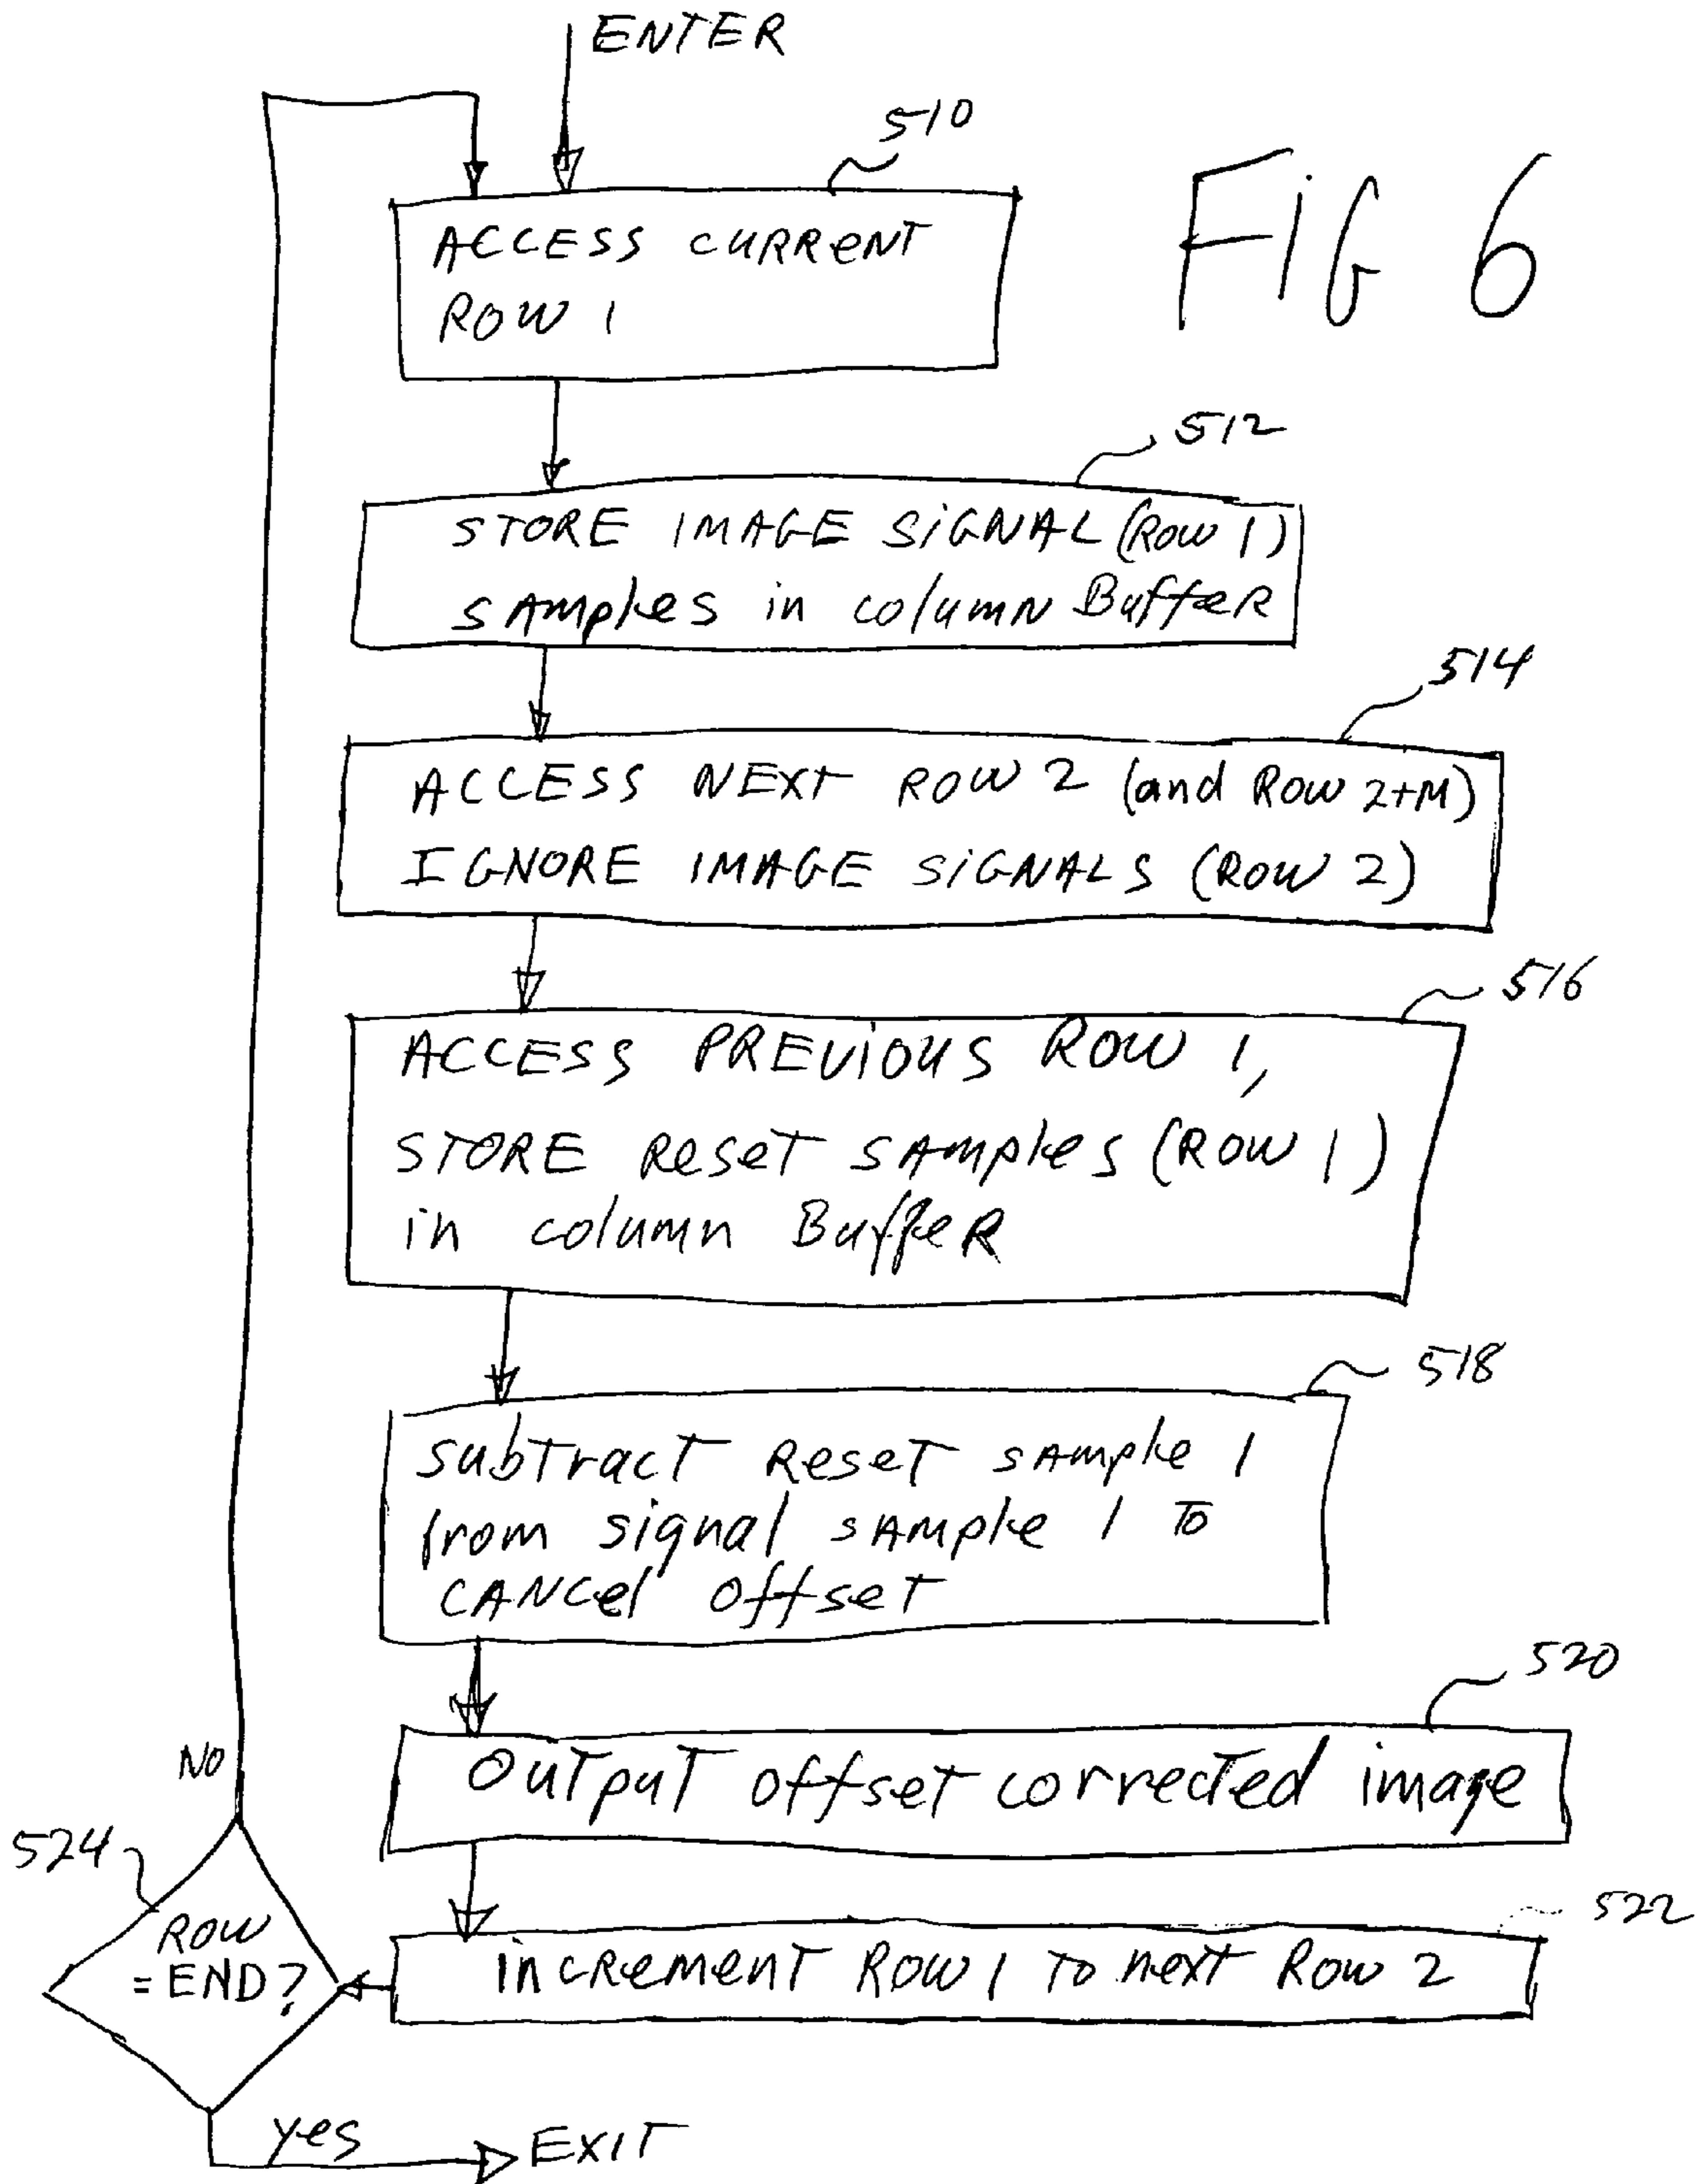 ENTER
510
FIG 6
ACCESS CURRENT
ROW 1
512
STORE IMAGE SIGNAL (ROW 1)
SAMPLES in column Buffer
514
ACCESS NEXT ROW 2 (and ROW 2+M)
IGNORE IMAGE SIGNALS (ROW 2)
516
ACCESS PREVIOUS ROW 1,
STORE Reset SAMPLES (ROW 1)
in column Buffer
518
Subtract Reset Sample 1
from signal sample 1 To
CANCEL offset
520
Output offset corrected image
NO
524
ROW
=END?
522
increment Row 1 to next Row 2
yes
EXIT